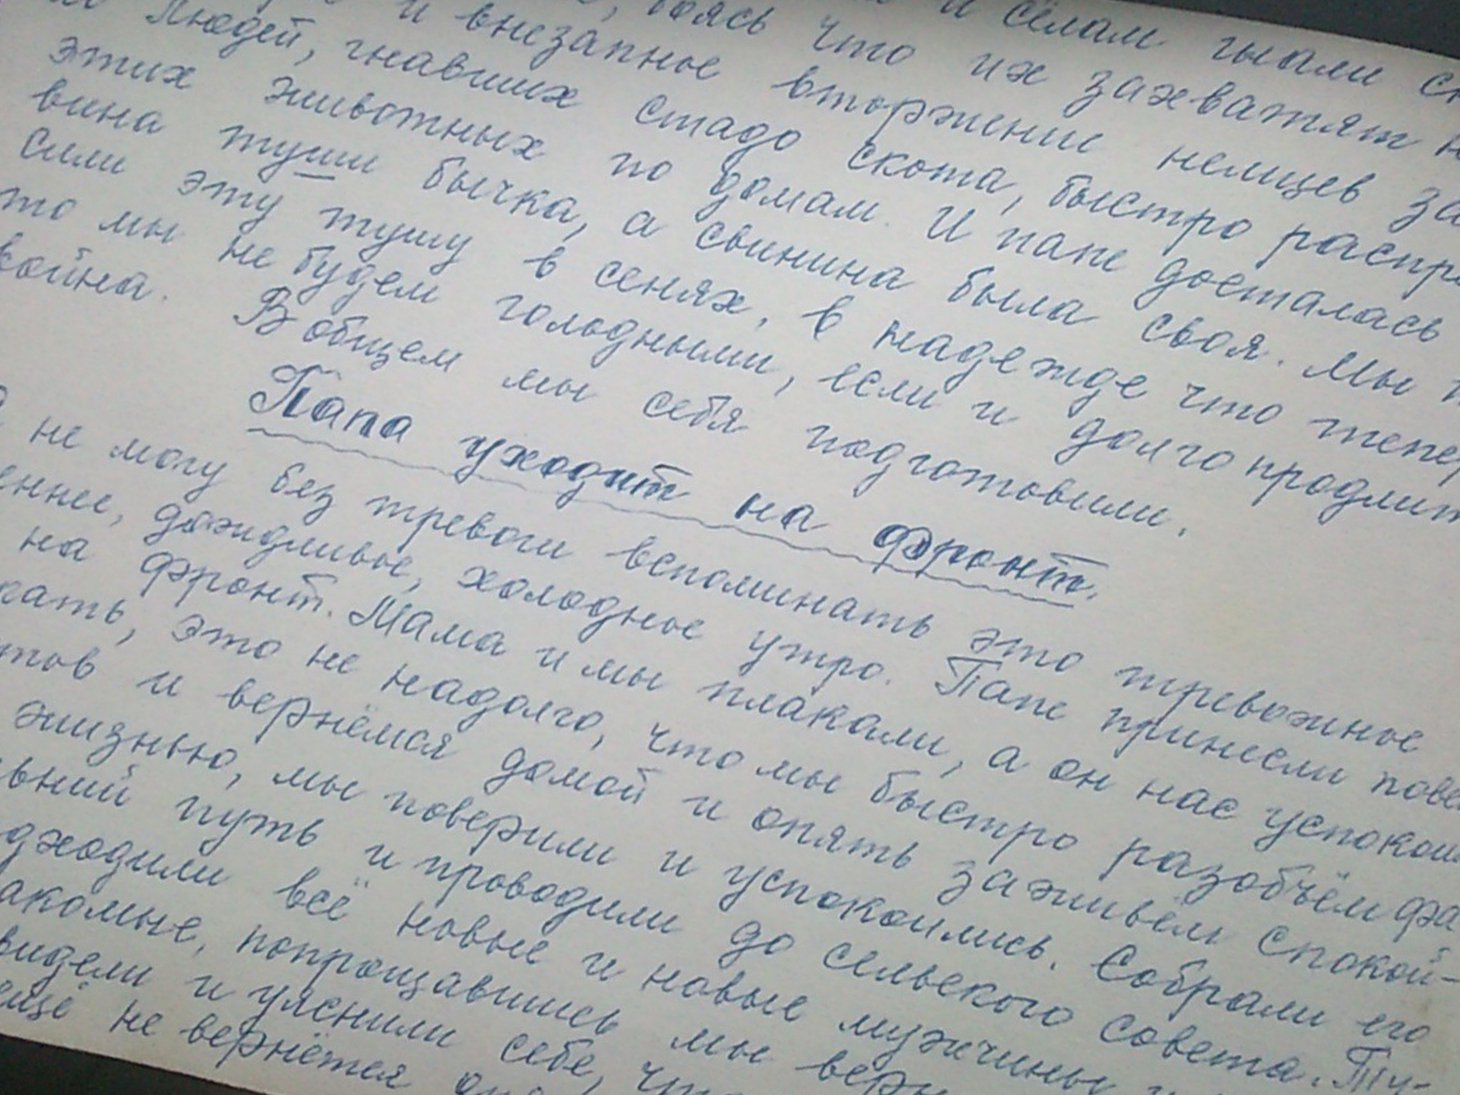 и сёлам гнали
боясь что их захватят
и внезапное вторжение немцев
Людей, гнавших стадо скота, быстро
этих животных по домам. И папе досталась
вина туши бычка, а свинина была своя. Мы
сили эту тушу в сенях, в надежде что
то мы не будем голодными, если и долго
война. В общем мы себя подготовили.
Папа уходит на фронт.
не могу без тревоги вспоминать это тревожное
дождливое, холодное утро. Папе принесли
на фронт. Мама и мы плакали, а он нас
это не надолго, что мы быстро разобьём
и вернёмся домой и опять заживём спокой-
жизнью, мы поверили и успокоились. Собрали его
путь и проводили до сельского совета. Ту-
всё новые и новые мужчины
попрощавшись мы
и уяснили себе,
ещё не вернётся